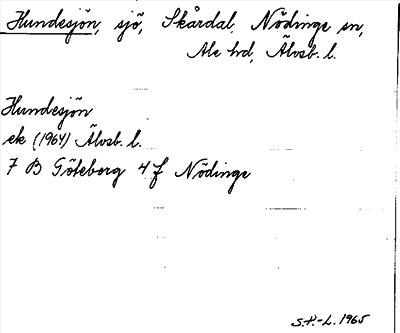 Hundesjön, sjö, Skårdal, Nödinge sn,
Ale hd, Älvsb. l.
Hundesjön
ek (1964) Älvsb. l.
7 B Göteborg 4 f Nödinge
S.P.-L. 1965